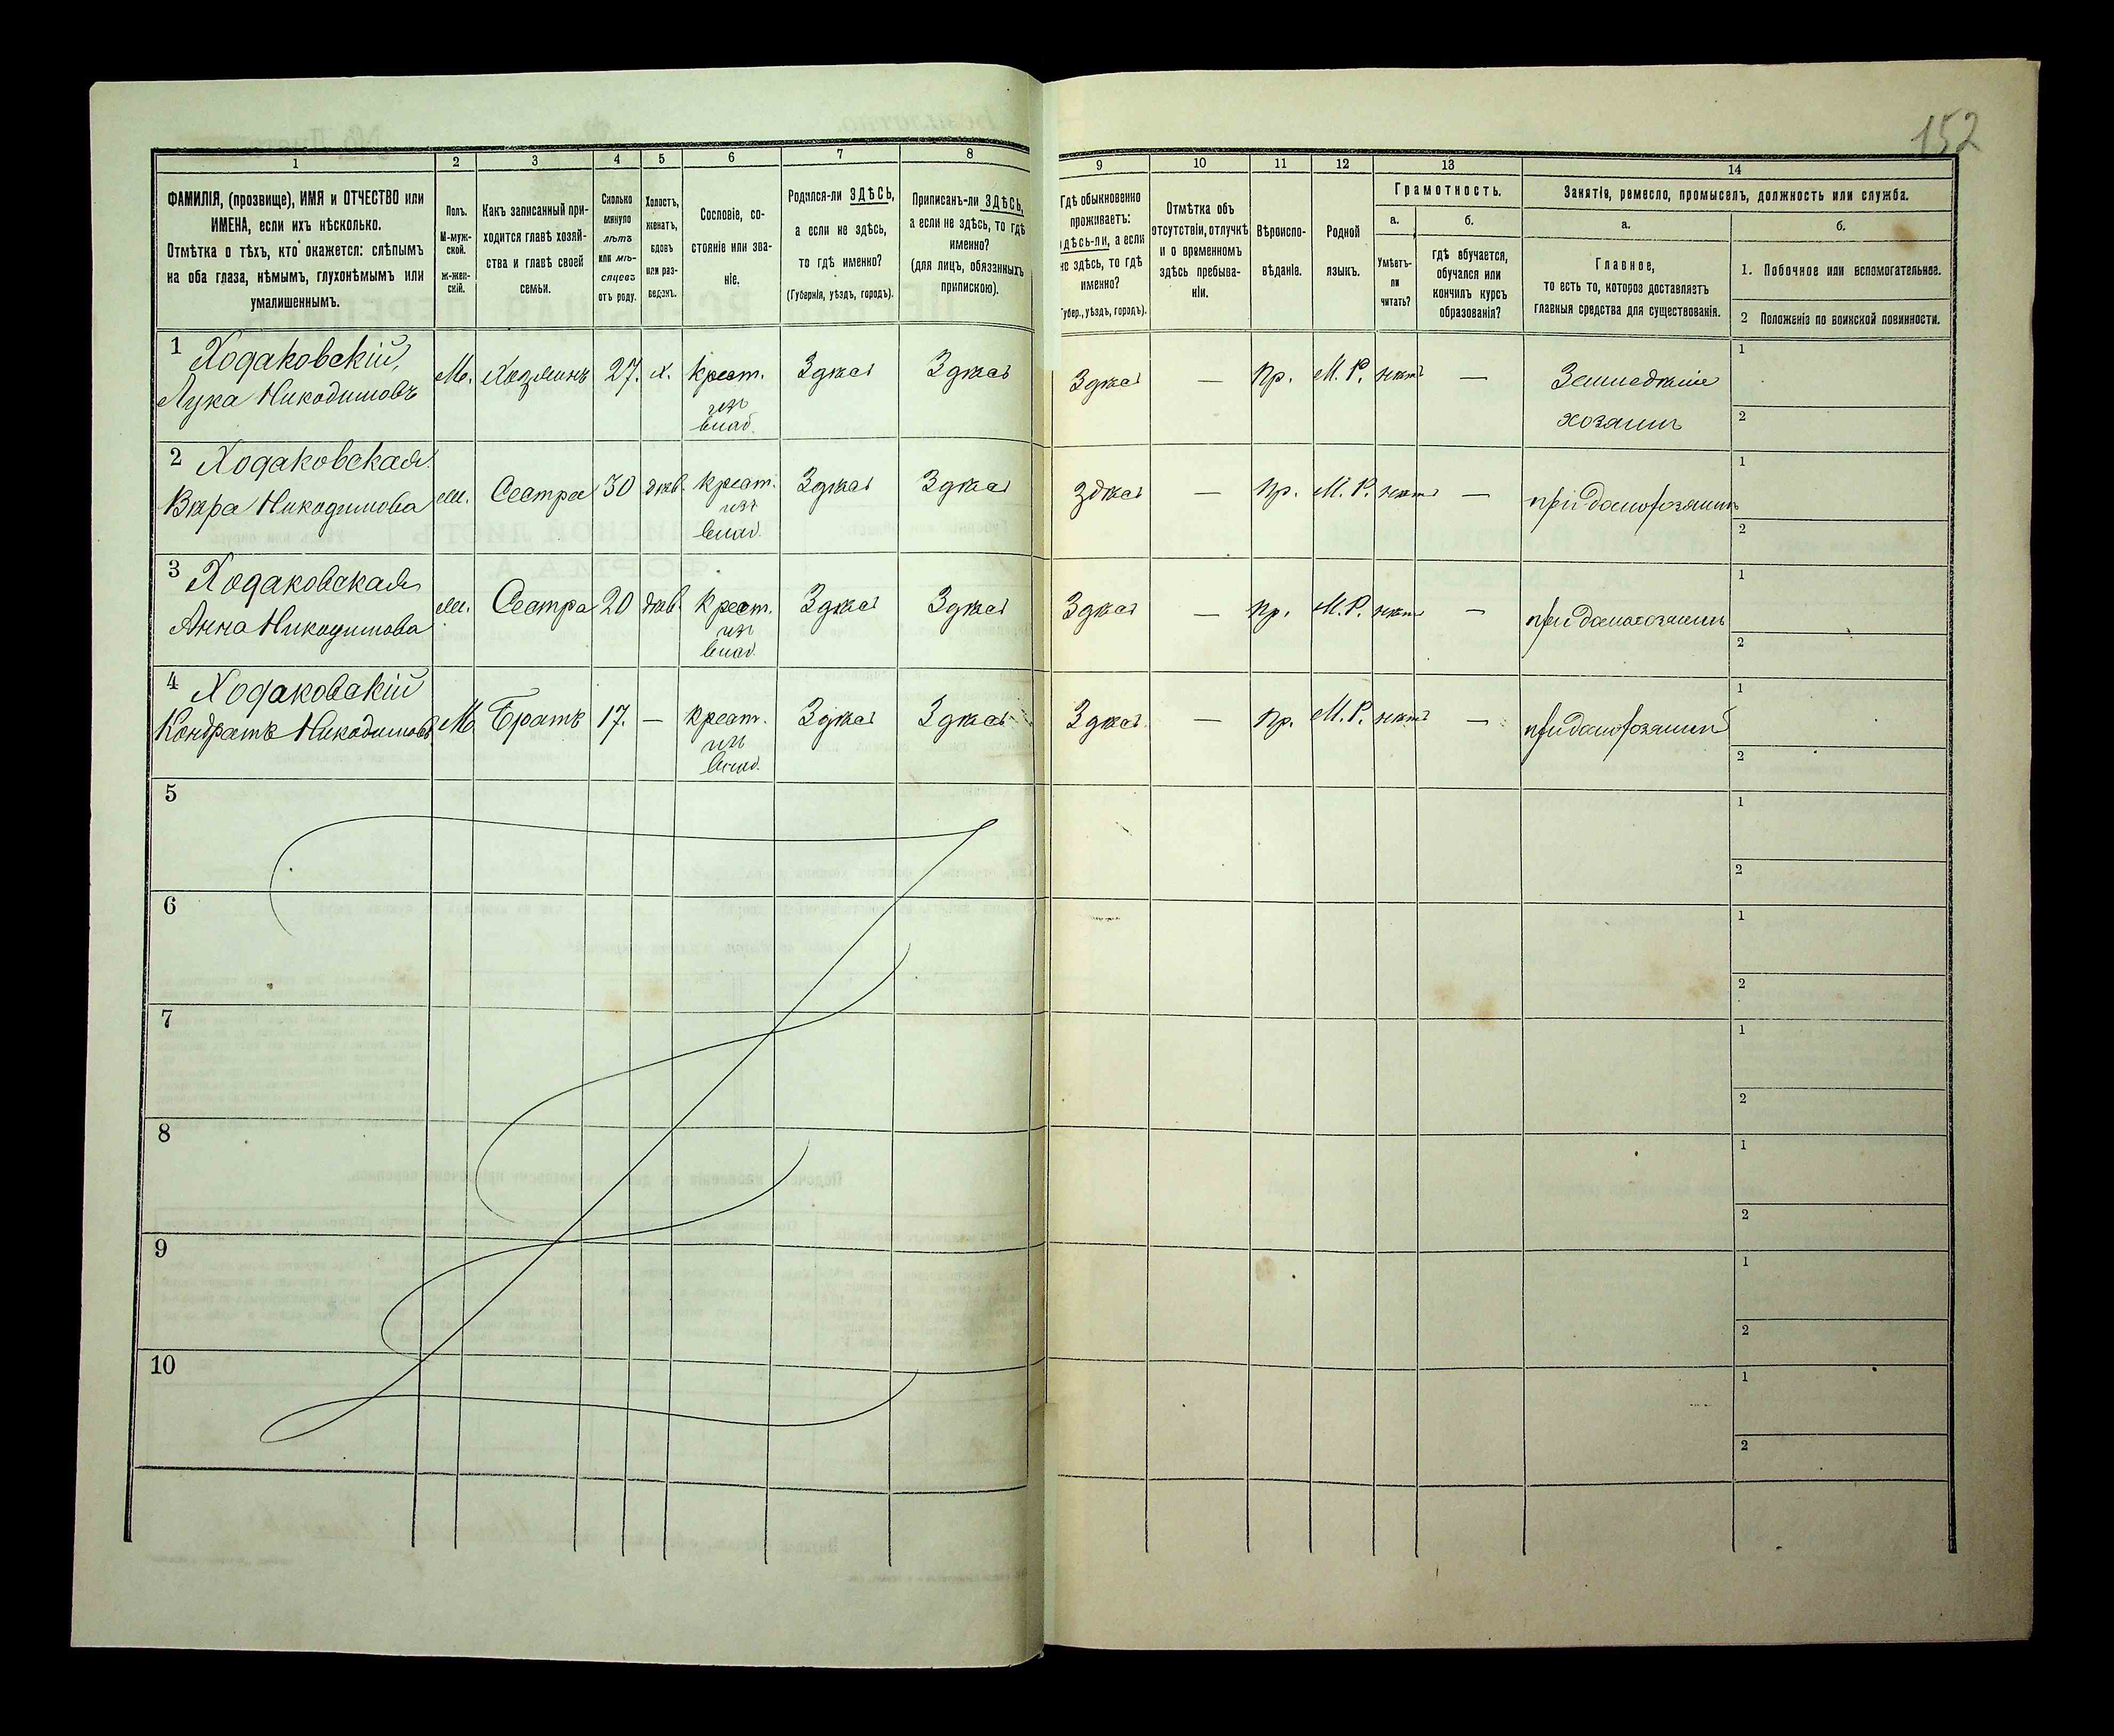 152
1
2
3
4
5
6
7
8
9
10
11
12
13
14
ФАМИЛІЯ, (прозвище), ИМЯ и ОТЧЕСТВО или
ИМЕНА, если ихъ нѣсколько.
Отмѣтка о тѣхъ, кто окажется: слѣпымъ
на оба глаза, нѣмымъ, глухонѣмымъ или
умалишеннымъ.
Полъ.
М-муж-
ской.
Ж-жен-
скій.
Какъ записанный при-
ходится главѣ хозяй-
ства и главѣ своей
семьи.
Сколько
минуло
лѣтъ
или мѣ-
сяцевъ
отъ роду.
Холостъ,
женатъ,
вдовъ
или раз-
веденъ.
Сословіе, со-
стояніе или зва-
ніе.
Родился-ли ЗДѢСЬ,
а если не здѣсь,
то гдѣ именно?
(Губернія, уѣздъ, городъ).
Приписанъ-ли ЗДѢСЬ,
а если не здѣсь, то гдѣ
именно?
(для лицъ, обязанныхъ
припискою).
Гдѣ обыкновенно
проживаетъ:
здѣсь-ли, а если
не здѣсь, то гдѣ
именно?
Губер., уѣздъ, городъ).
Отмѣтка объ
отсутствіи, отлучкѣ
и о временномъ
здѣсь пребыва-
ніи.
Вѣроиспо-
вѣданіе.
Родной
языкъ.
Грамотность.
а.
Умѣетъ-
ли
читать?
б.
гдѣ обучается,
обучался или
кончилъ курсъ
образованія?
Занятія, ремесло, промыселъ, должность или служба.
а.
Главное,
то есть то, которое доставляетъ
главныя средства для существованія.
б.
1. Побочное или вспомогательное.
2 Положеніе по воинской повинности.
1 Ходаковскій,
Лука Никодимовъ
М. Хозяинъ 27. х. крест.
изъ
влад.
Здѣсь Здѣсь Здѣсь — Пр. М. Р. нѣтъ —
Земледѣліе
хозяинъ
1
2
2 Ходаковская
Вѣра Никодимова
ж. Сестра 30 дѣв. крест.
изъ
влад.
Здѣсь Здѣсь Здѣсь — Пр. М. Р. нѣтъ — при домохозяинѣ
1
2
3 Ходаковская
Анна Никодимова
ж. Сестра 20 дѣв. крест.
изъ
влад.
Здѣсь Здѣсь Здѣсь — Пр. М. Р. нѣтъ — при домохозяинѣ
1
2
4 Ходаковскій
Кондратъ Никодимовъ
М Братъ 17. — крест.
изъ
влад.
Здѣсь Здѣсь Здѣсь — Пр. М. Р. нѣтъ — при домохозяинѣ
1
2
5
1
2
6
1
2
7
1
2
8
1
2
9
1
2
10
1
2